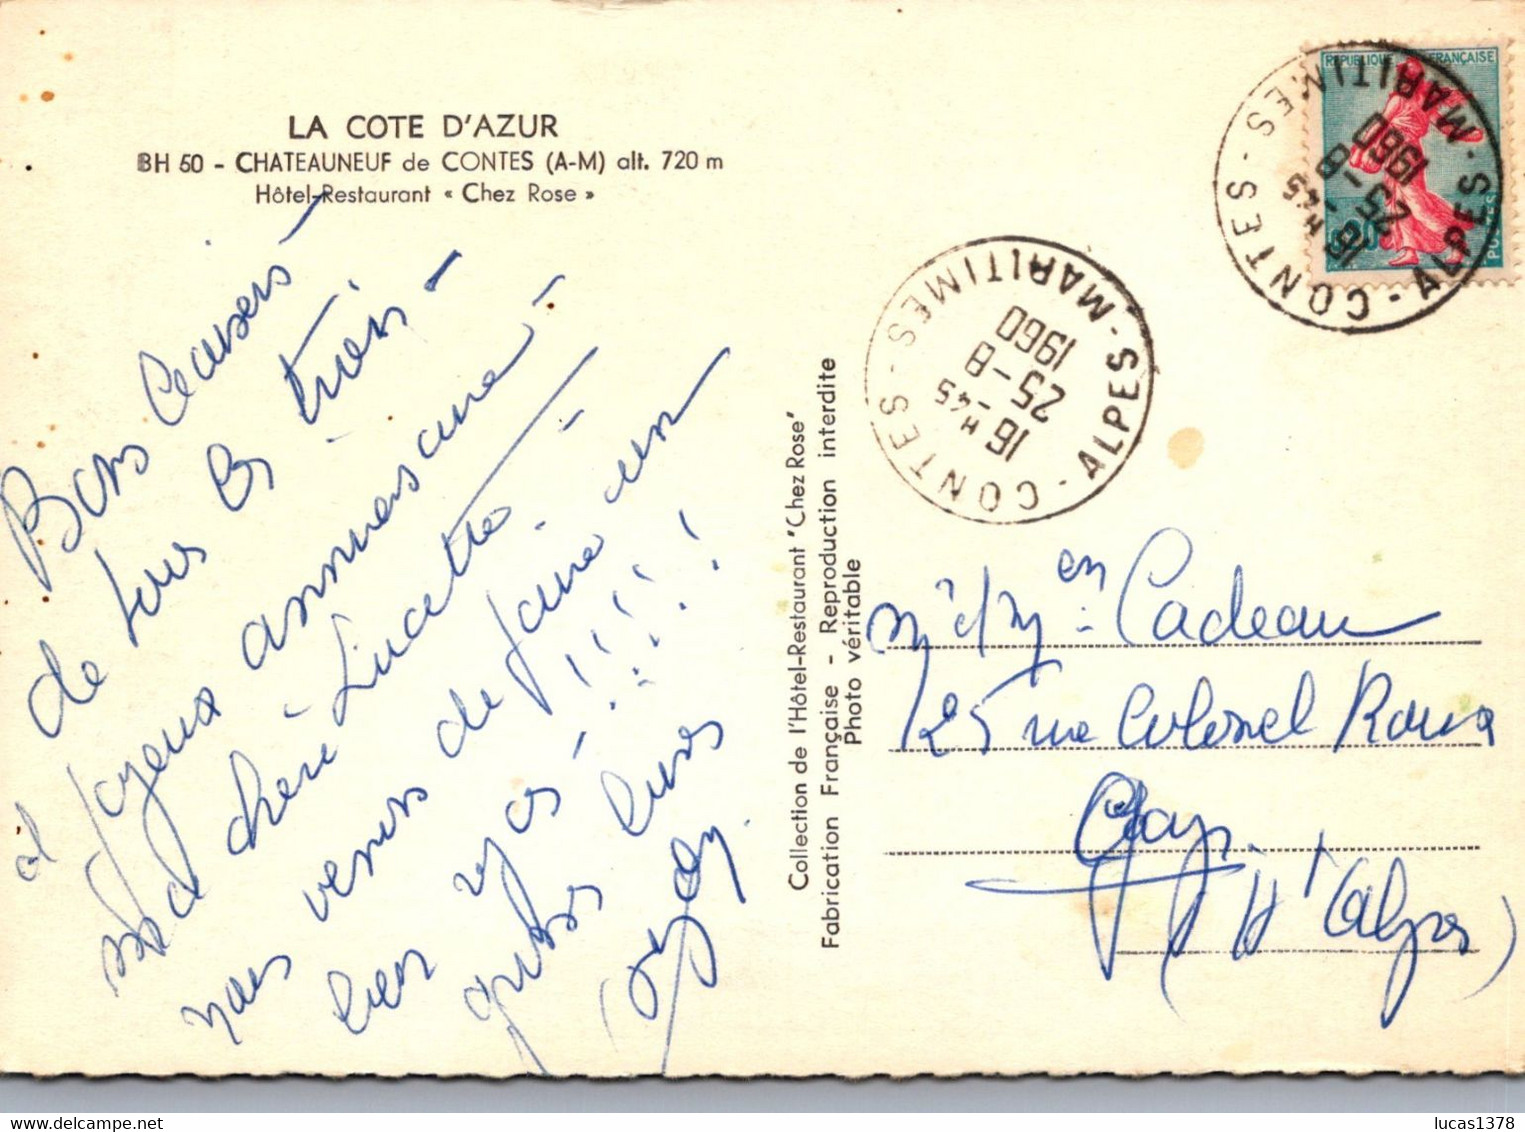 LA COTE D'AZUR
BH 50 - CHATEAUNEUF de CONTES (A-M) alt. 720 m
Hôtel-Restaurant « Chez Rose »
Bons baisers
de tous les trois -
et joyeux anniversaire -
à chère Lucette -
nous venons de faire un
bon repas !!!!!
grosses bises
Collection de l'Hôtel-Restaurant "Chez Rose"
Fabrication Française - Reproduction interdite
Photo véritable
REPUBLIQUE FRANÇAISE
POSTES
CONTES - ALPES-MARITIMES -
16 H -45
25 -8
1960
CONTES - ALPES-MARITIMES -
16 H -45
25 -8
1960
Mr et Mme Cadeau
25 rue Colonel Roux
Gap
(Htes Alpes)
lucas1378